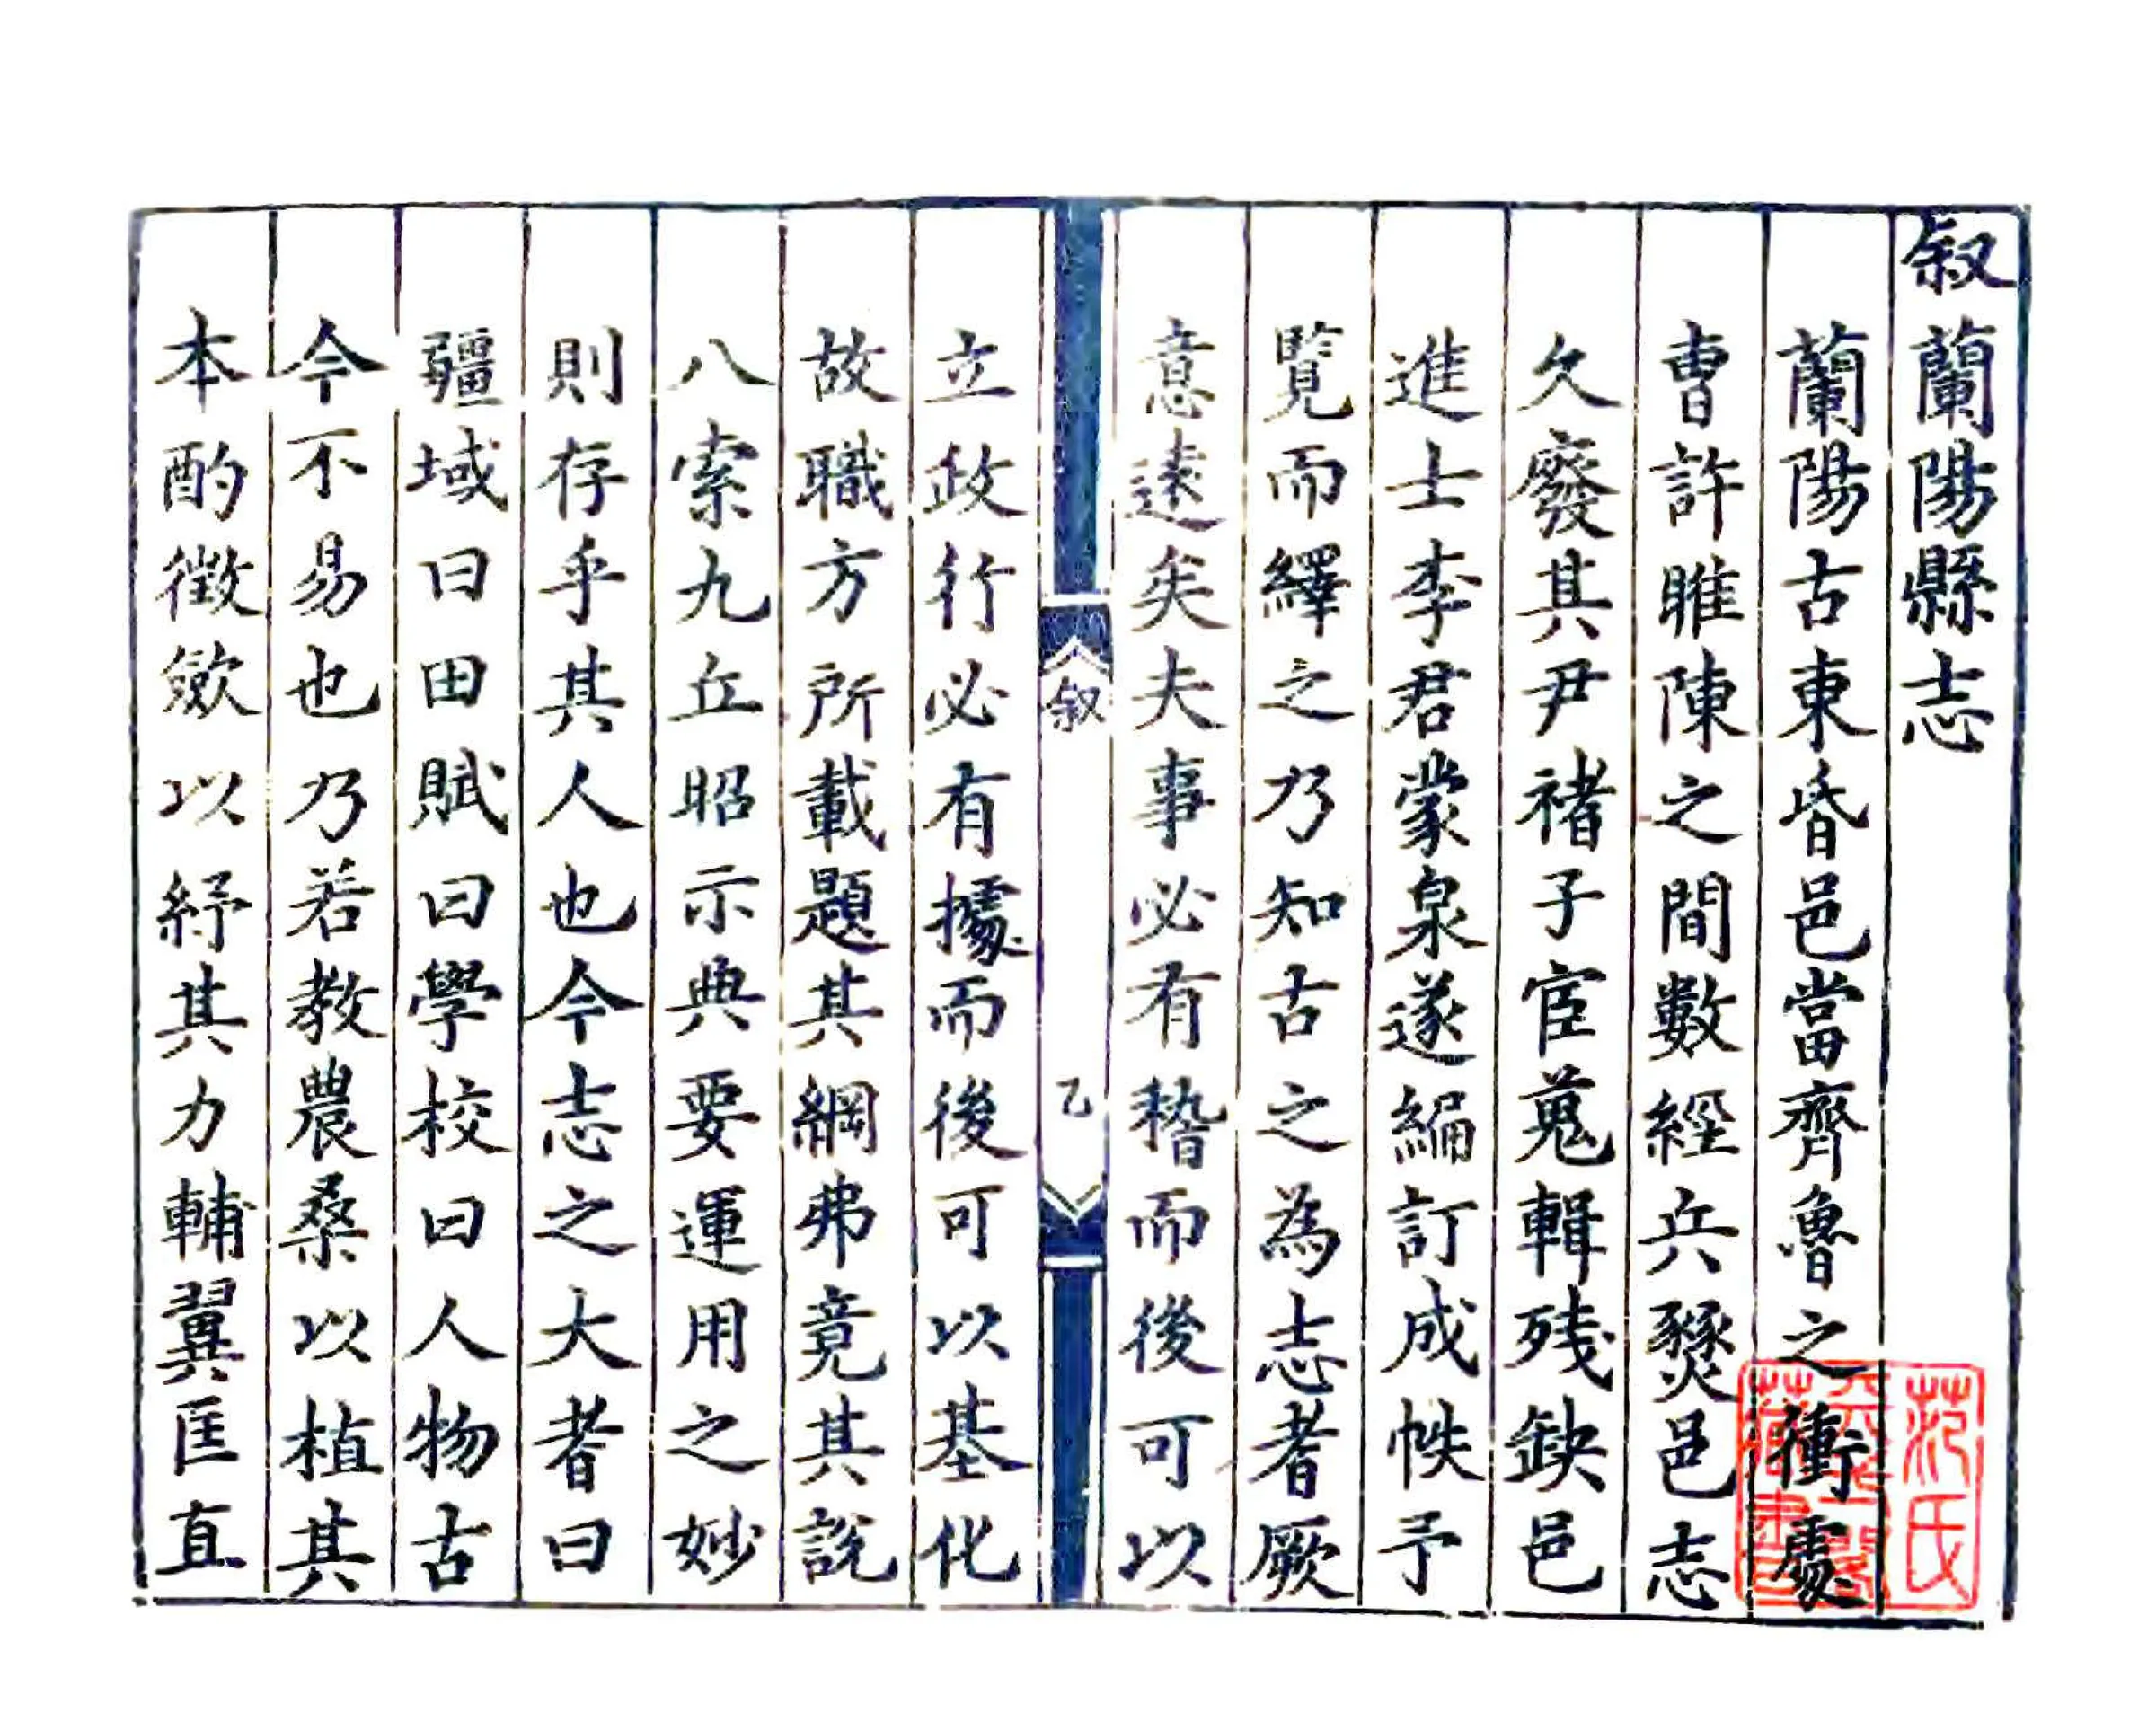 叙蘭陽縣志
蘭陽古東昏邑當齊魯之衝處
曺許睢陳之間數經兵燹邑志
久廢其尹禇子宦蒐輯残缺邑
進士李君蒙泉遂編訂成帙予
覽而繹之乃知古之為志者厥
意遠矣夫事必有稽而後可以
叙
乙
立政行必有據而後可以基化
故職方所載題其綱弗竟其說
八索九丘昭示典要運用之妙
則存乎其人也今志之大者曰
疆域曰田賦曰學校曰人物古
今不易也乃若教農桑以植其
本酌徵斂以紓其力輔翼匡直
范氏
天一閣
藏書